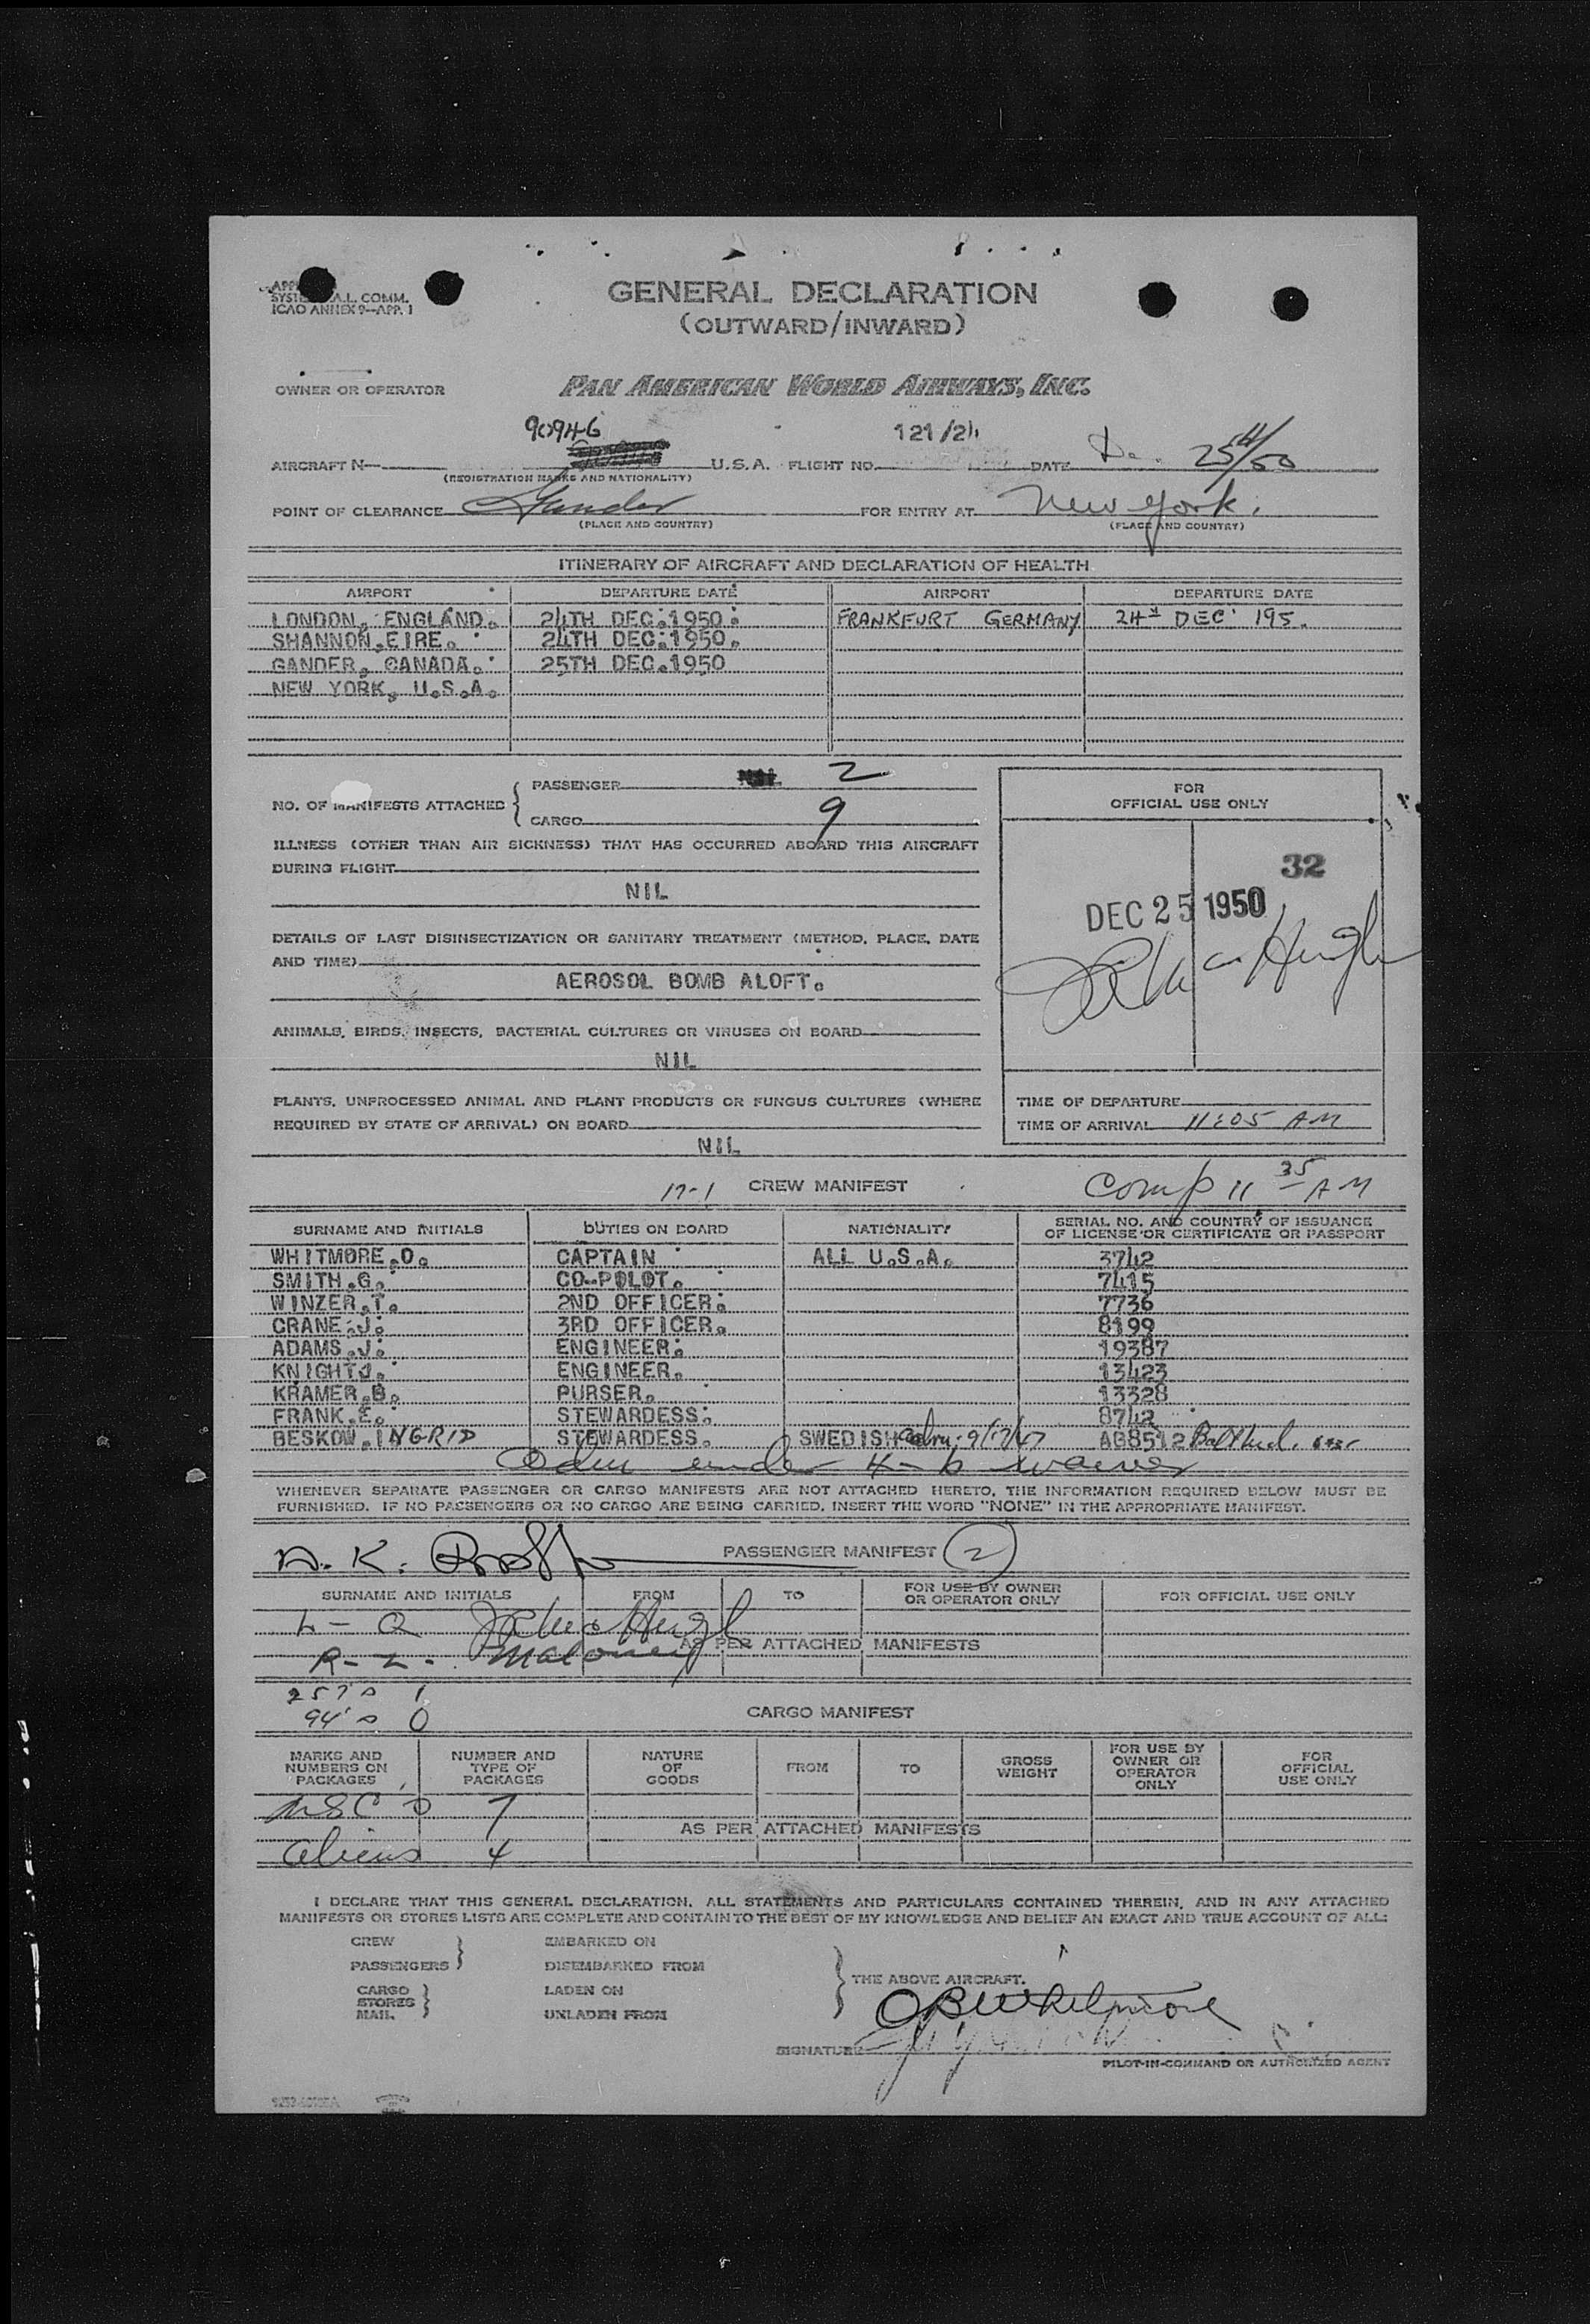 SYSTE A.L. COMM.
ICAO ANNEX 9—APP. 1
GENERAL DECLARATION
(OUTWARD/INWARD)
OWNER OR OPERATOR PAN AMERICAN WORLD AIRWAYS, INC.
90946 121/24
AIRCRAFT N— U.S.A. FLIGHT NO. DATE 25th/50
(REGISTRATION MARKS AND NATIONALITY)
POINT OF CLEARANCE Gander FOR ENTRY AT New York.
(PLACE AND COUNTRY) (PLACE AND COUNTRY)
ITINERARY OF AIRCRAFT AND DECLARATION OF HEALTH
AIRPORT DEPARTURE DATE AIRPORT DEPARTURE DATE
LONDON, ENGLAND. 24TH DEC.1950. FRANKFURT GERMANY 24th DEC. 195.
SHANNON.EIRE. 24TH DEC.1950.
GANDER, CANADA. 25TH DEC.1950
NEW YORK, U.S.A.
PASSENGER 2
NO. OF MANIFESTS ATTACHED
CARGO 9
FOR
OFFICIAL USE ONLY
ILLNESS (OTHER THAN AIR SICKNESS) THAT HAS OCCURRED ABOARD THIS AIRCRAFT
DURING FLIGHT
NIL
32
DEC 25 1950
DETAILS OF LAST DISINSECTIZATION OR SANITARY TREATMENT (METHOD, PLACE, DATE
AND TIME)
AEROSOL BOMB ALOFT.
ANIMALS, BIRDS, INSECTS, BACTERIAL CULTURES OR VIRUSES ON BOARD
NIL
PLANTS, UNPROCESSED ANIMAL AND PLANT PRODUCTS OR FUNGUS CULTURES (WHERE
REQUIRED BY STATE OF ARRIVAL) ON BOARD
NIL
TIME OF DEPARTURE
TIME OF ARRIVAL 11:05 AM
17-1 CREW MANIFEST Comp 11 35 AM
SURNAME AND INITIALS DUTIES ON BOARD NATIONALITY SERIAL NO. AND COUNTRY OF ISSUANCE
OF LICENSE OR CERTIFICATE OR PASSPORT
WHITMORE.O. CAPTAIN ALL U.S.A. 3742
SMITH.G. CO-POLOT. 7415
WINZER.T. 2ND OFFICER. 7736
CRANE.J. 3RD OFFICER. 8199
ADAMS.J. ENGINEER. 19387
KNIGHTJ. ENGINEER. 13423
KRAMER.B. PURSER. 13328
FRANK.E. STEWARDESS. 8742
BESKOW.INGRID STEWARDESS. SWEDISH 9/17/47 AG8512
Adm under 4-b waiver
WHENEVER SEPARATE PASSENGER OR CARGO MANIFESTS ARE NOT ATTACHED HERETO, THE INFORMATION REQUIRED BELOW MUST BE
FURNISHED. IF NO PASSENGERS OR NO CARGO ARE BEING CARRIED, INSERT THE WORD "NONE" IN THE APPROPRIATE MANIFEST.
PASSENGER MANIFEST 2
SURNAME AND INITIALS FROM TO FOR USE BY OWNER
OR OPERATOR ONLY FOR OFFICIAL USE ONLY
AS PER ATTACHED MANIFESTS
R-L- Maloney
257's 1
94's 0
CARGO MANIFEST
MARKS AND
NUMBERS ON
PACKAGES
NUMBER AND
TYPE OF
PACKAGES
NATURE
OF
GOODS
FROM
TO
GROSS
WEIGHT
FOR USE BY
OWNER OR
OPERATOR
ONLY
FOR
OFFICIAL
USE ONLY
USC's 7
AS PER ATTACHED MANIFESTS
Aliens 4
I DECLARE THAT THIS GENERAL DECLARATION, ALL STATEMENTS AND PARTICULARS CONTAINED THEREIN, AND IN ANY ATTACHED
MANIFESTS OR STORES LISTS ARE COMPLETE AND CONTAIN TO THE BEST OF MY KNOWLEDGE AND BELIEF AN EXACT AND TRUE ACCOUNT OF ALL:
CREW EMBARKED ON
PASSENGERS DISEMBARKED FROM
THE ABOVE AIRCRAFT.
CARGO LADEN ON
STORES
MAIL UNLADEN FROM
OBWhitmore
SIGNATURE
PILOT-IN-COMMAND OR AUTHORIZED AGENT